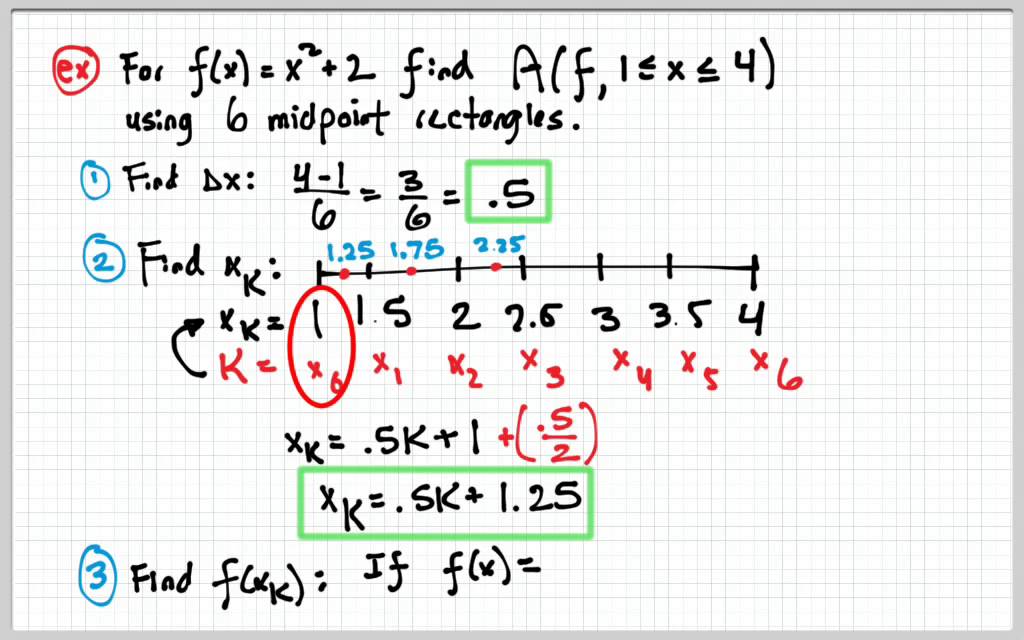 ex For f(x) = x² + 2 find A(f, 1 ≤ x ≤ 4)
using 6 midpoint rectangles.
1 Find Δx: 4-1/6 = 3/6 = .5
1.25 1.75 2.25
2 Find xₖ:
xₖ = 1 1.5 2 2.5 3 3.5 4
K = x₀ x₁ x₂ x₃ x₄ x₅ x₆
xₖ = .5K + 1 + (.5/2)
xₖ = .5K + 1.25
3 Find f(xₖ): If f(x) =